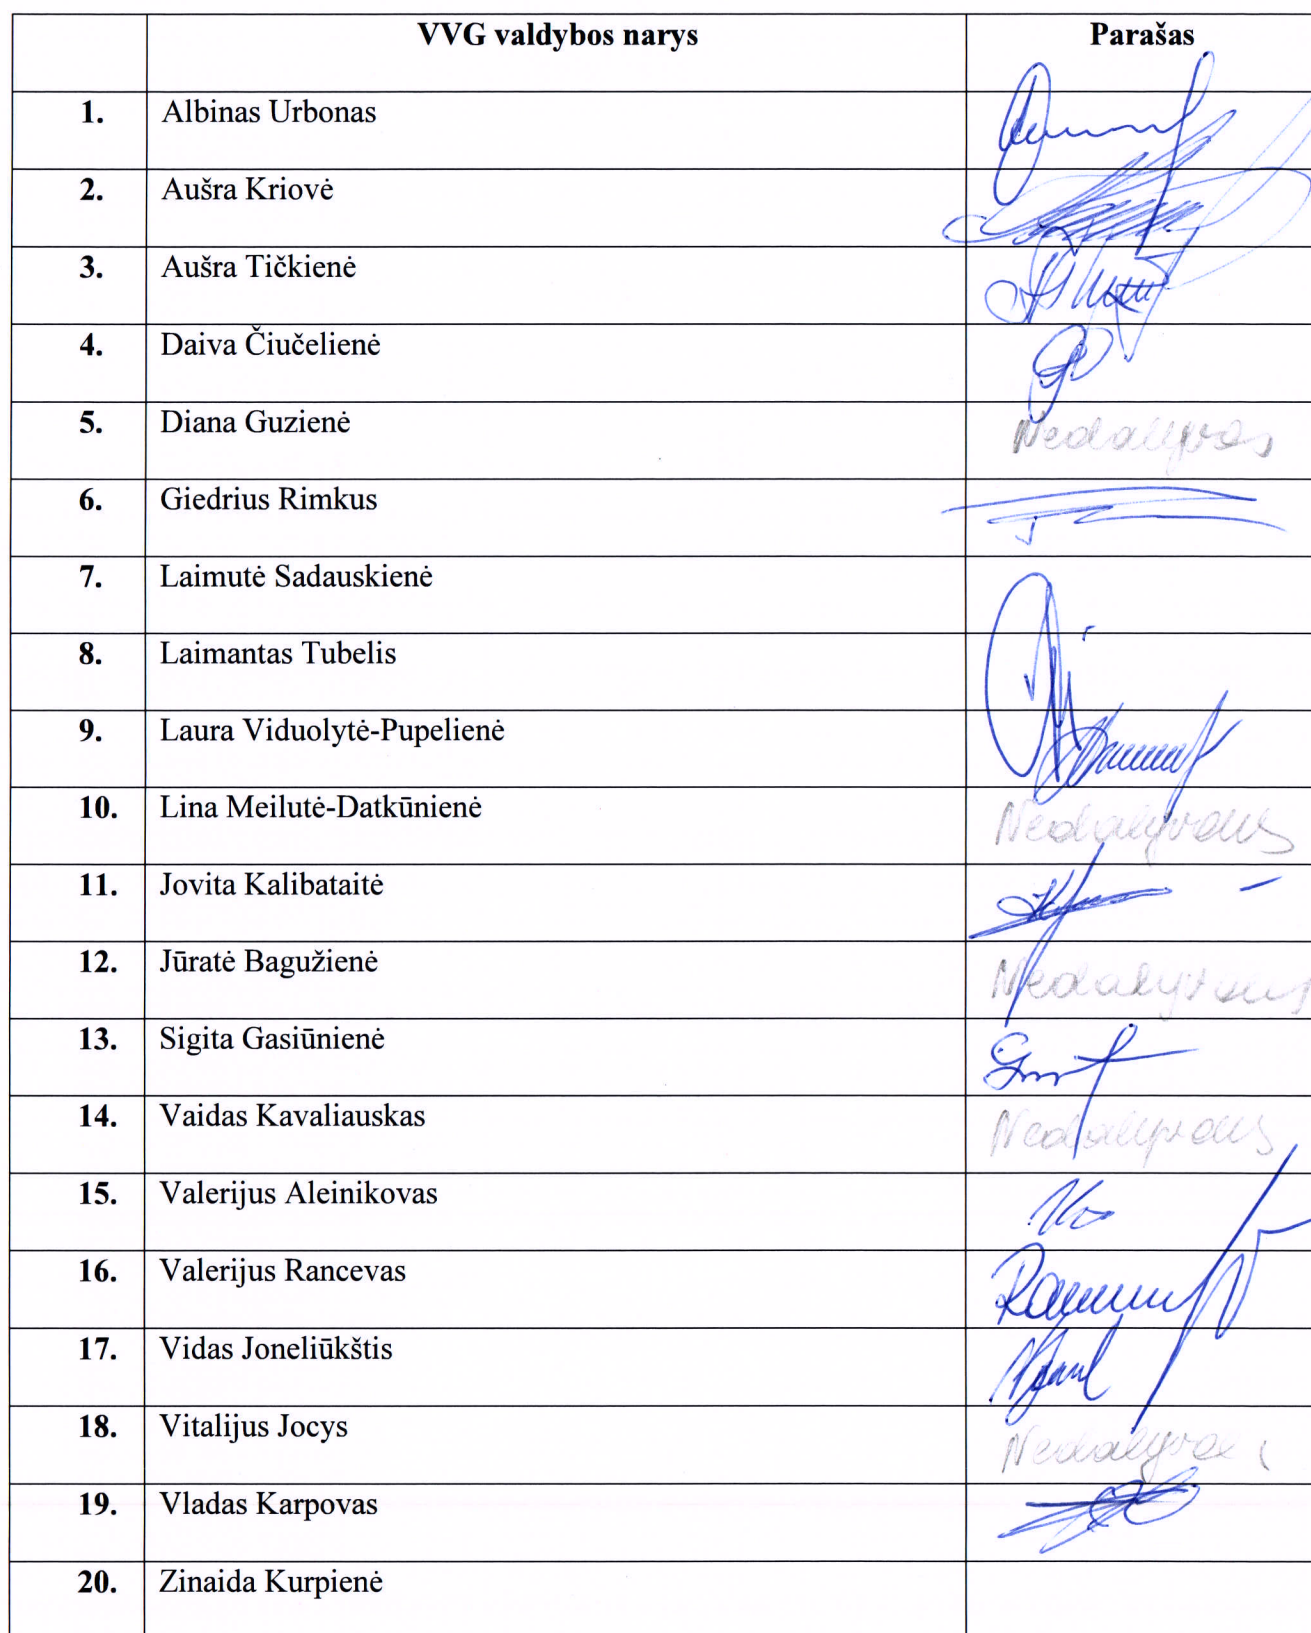 VVG valdybos narys Parašas
1. Albinas Urbonas
2. Aušra Kriovė
3. Aušra Tičkienė
4. Daiva Čiučelienė
5. Diana Guzienė Nedalyvas
6. Giedrius Rimkus
7. Laimutė Sadauskienė
8. Laimantas Tubelis
9. Laura Viduolytė-Pupelienė
10. Lina Meilutė-Datkūnienė Nedalyvaus
11. Jovita Kalibataitė
12. Jūratė Bagužienė Nedalyvaus
13. Sigita Gasiūnienė
14. Vaidas Kavaliauskas Nedalyvaus
15. Valerijus Aleinikovas
16. Valerijus Rancevas
17. Vidas Joneliūkštis
18. Vitalijus Jocys
19. Vladas Karpovas
20. Zinaida Kurpienė